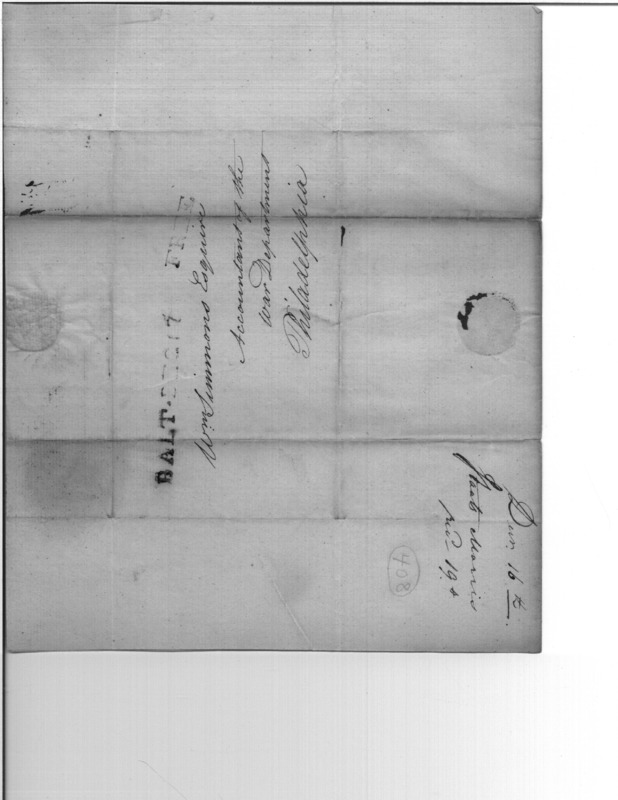 BALT. FREE
Wm Simmons Esquire
Accountant of the
War Department
Philadelphia
16th
19th
408